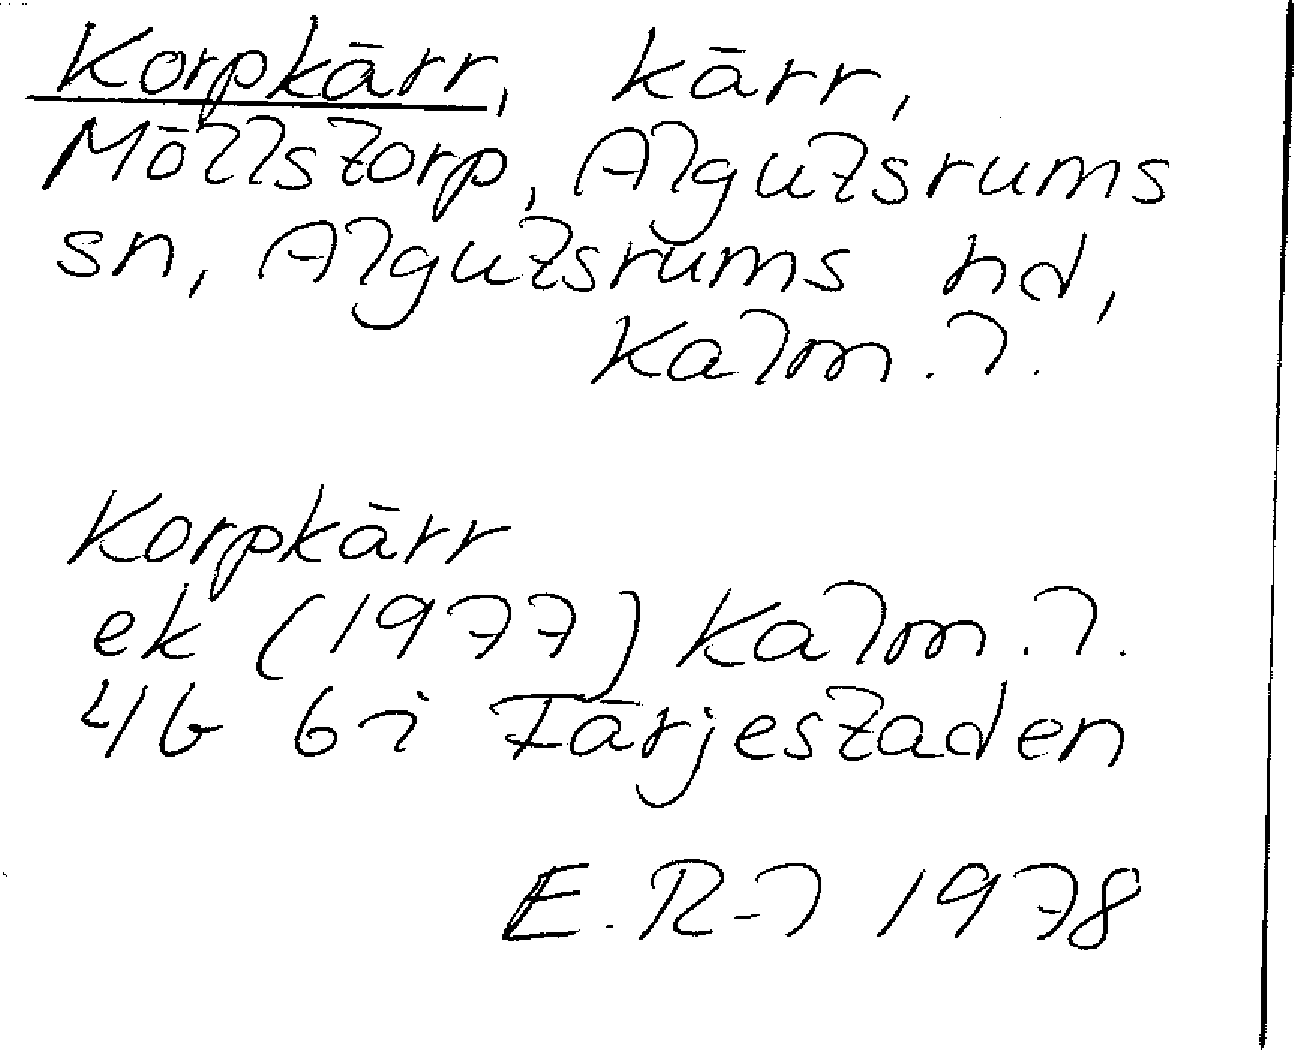 Korpkärr, kärr,
Möllstorp, Algutsrums
sn, Algutsrums hd,
Kalm. l.
Korpkärr
ek (1977) Kalm. l.
4G 6i Färjestaden
E. R-l 1978